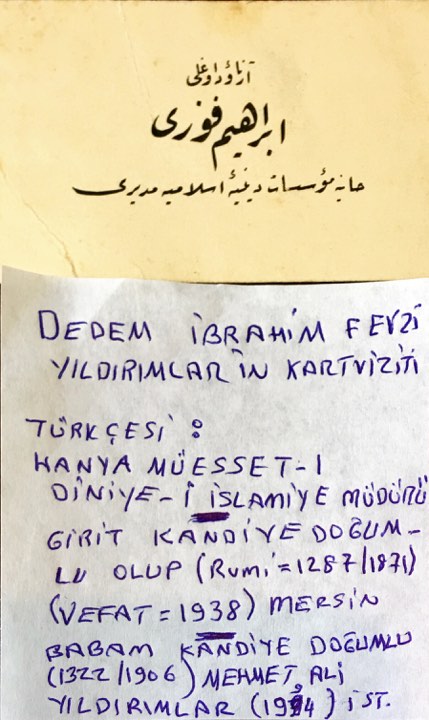 آرناؤد اوغلی
ابراهیم فوزی
حانیه مؤسسات دینیهٔ اسلامیه مدیری
DEDEM İBRAHİM FEVZİ
YILDIRIMLAR'IN KARTVİZİTİ
TÜRKÇESİ :
HANYA MÜESSET-I
DİNİYE-İ İSLAMİYE MÜDÜRÜ
GİRİT KANDİYE DOĞUM-
LU OLUP (Rumi=1287/1871)
(VEFAT=1938) MERSİN
BABAM KANDİYE DOĞUMLU
(1322/1906) MEHMET ALİ
YILDIRIMLAR (1994) İST.